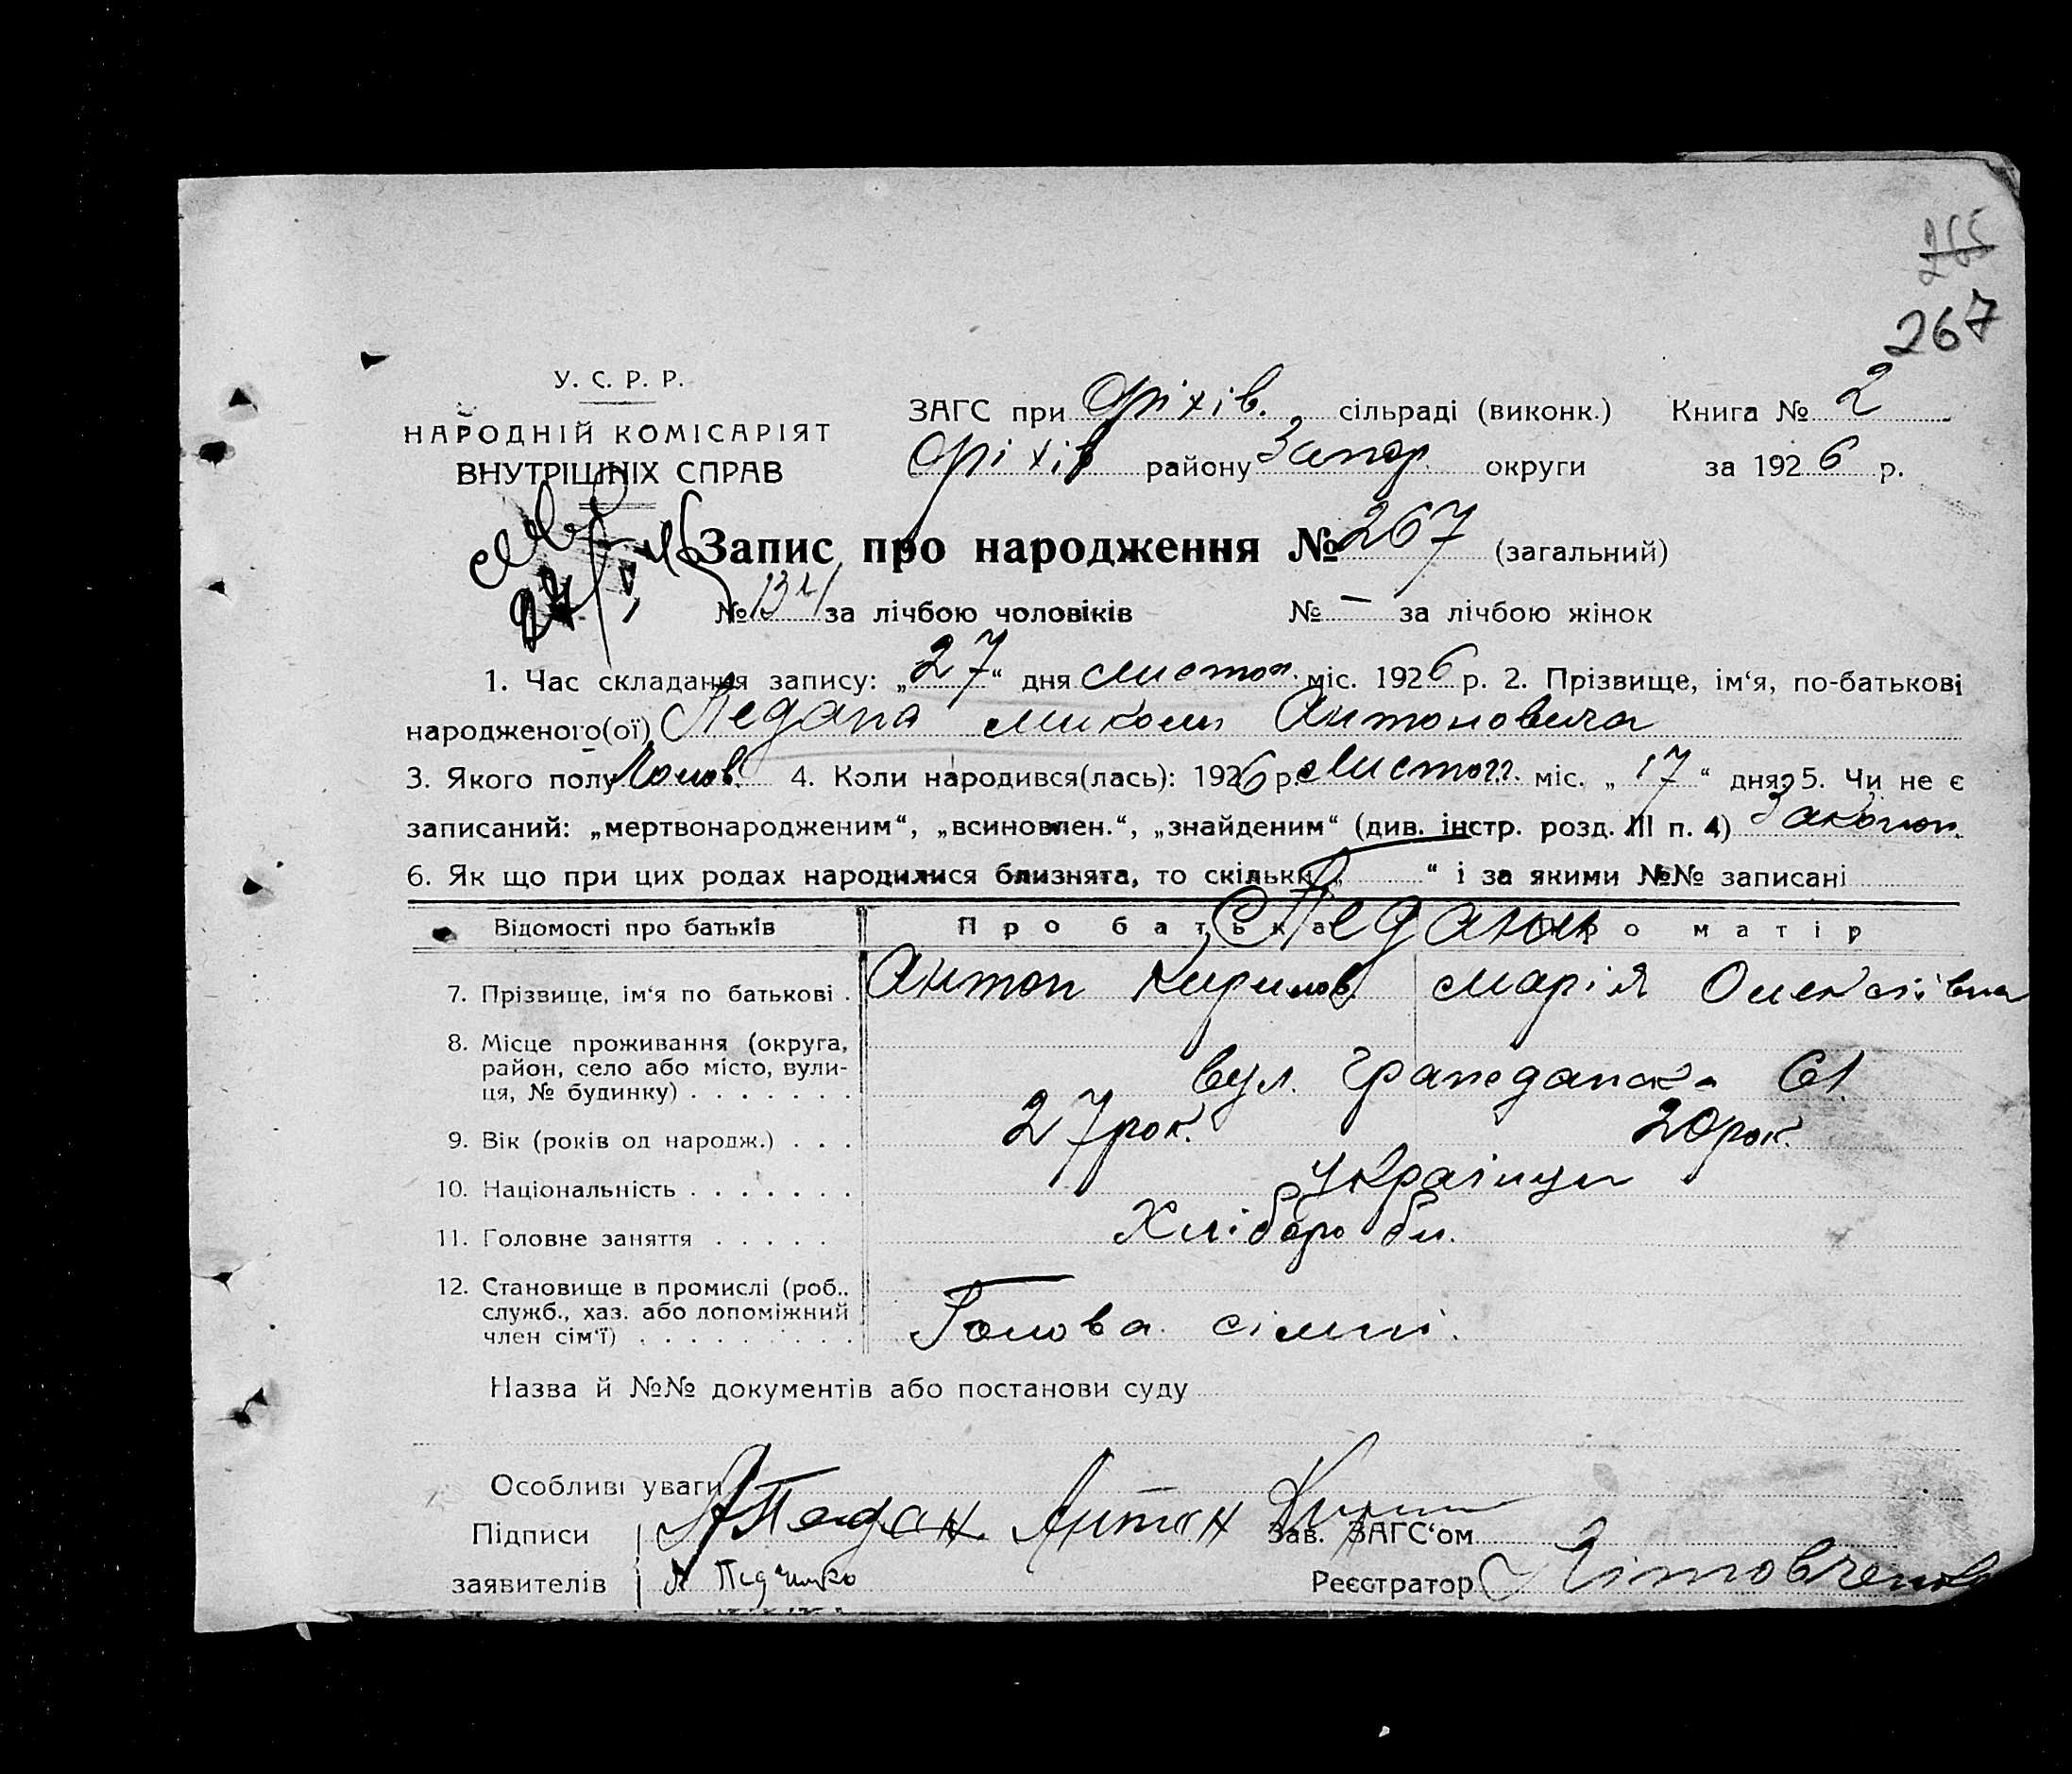 265
267
У. С. Р. Р.
НАРОДНІЙ КОМІСАРІЯТ
ВНУТРІШНІХ СПРАВ
ЗАГС при Оріхів. сільраді (виконк.) Книга № 2
Оріхів району Запор. округи за 1926 р.
Запис про народження № 267 (загальний)
№ 134 за лічбою чоловіків № — за лічбою жінок
1. Час складання запису: „27“ дня листоп. міс. 1926 р. 2. Прізвище, ім‘я, по-батькові
народженого(ої) Педана Миколи Антоновича
3. Якого полу Чолов. 4. Коли народився(лась): 1926 р. Листоп. міс. „17“ дня. 5. Чи не є
записаний: „мертвонародженим“, „всиновлен.“, „знайденим“ (див. інстр. розд. III п. 4) Законон.
6. Як що при цих родах народилися близнята, то скільки „ “ і за якими №№ записані
Відомості про батьків Про батька Про матір
Педани
7. Прізвище, ім‘я по батькові . Антон Кирилов. Марія Олексіївна
8. Місце проживання (округа,
район, село або місто, вули-
ця, № будинку) . . . . . . . вул. 61.
9. Вік (років од народж.) . . . 27 рок. 20 рок.
10. Національність . . . . . . . Українци
11. Головне заняття . . . . . Хлібороби.
12. Становище в промислі (роб..
служб., хаз. або допоміжний
член сім‘ї) . . . . . . . . . Голова сімї.
Назва й №№ документів або постанови суду
Особливі уваги
Підписи Педан Антон Зав. ЗАГС‘ом
заявителів Реєстратор